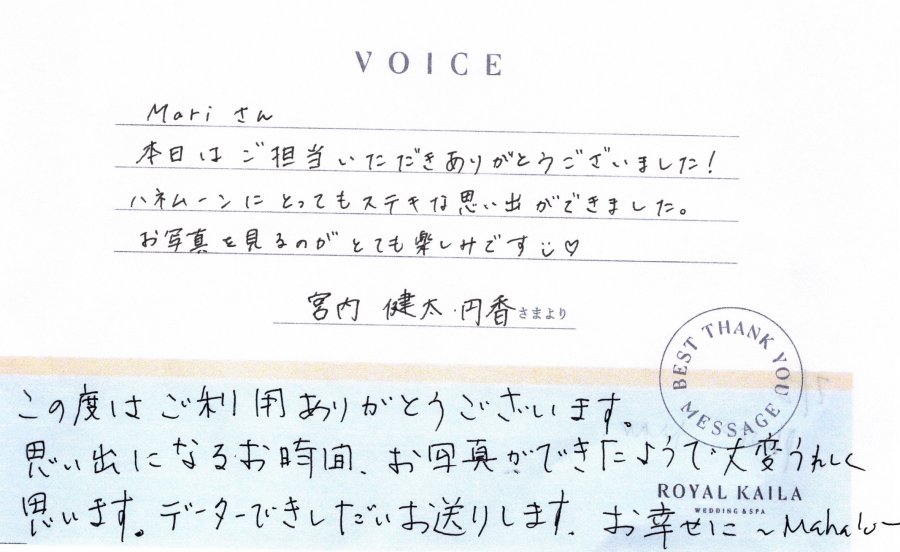 VOICE
Mari さん
本日はご担当いただきありがとうございました!
ハネムーンにとってもステキな思い出ができました。
お写真を見るのがとても楽しみです♡
宮内 健太・円香さまより
BEST THANK YOU
MESSAGE
この度はご利用ありがとうございます。
思い出になるお時間、お写真ができたようで大変うれしく
ROYAL KAILA
WEDDING & SPA
思います。データーできしだいお送りします。お幸せに~Mahalo~